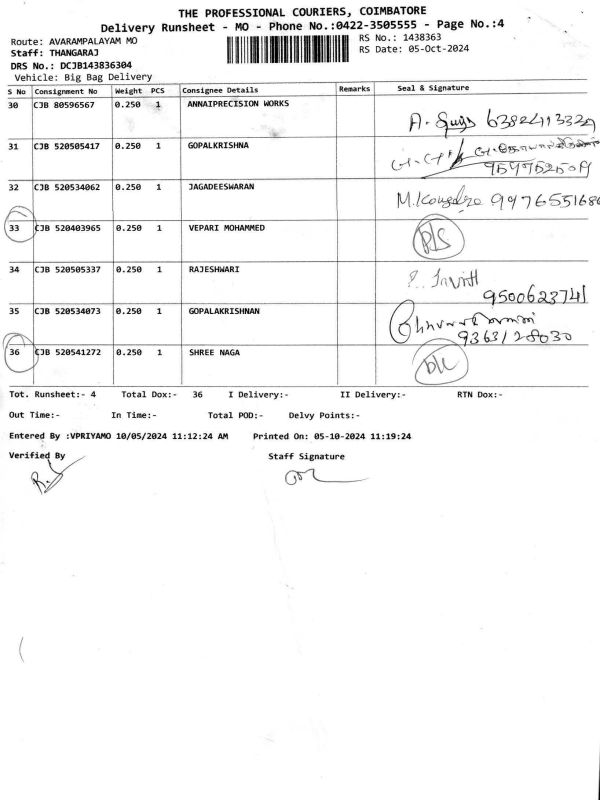 THE PROFESSIONAL COURIERS, COIMBATORE
Delivery Runsheet - MO - Phone No.:0422-3505555 - Page No.:4
Route: AVARAMPALAYAM MO
RS No.: 1438363
Staff: THANGARAJ
RS Date: 05-Oct-2024
DRS No.: DCJB143836304
Vehicle: Big Bag Delivery
S No Consignment No Weight PCS Consignee Details Remarks Seal & Signature
30 CJB 80596567 0.250 1 ANNAIPRECISION WORKS
31 CJB 520505417 0.250 1 GOPALKRISHNA
32 CJB 520534062 0.250 1 JAGADEESWARAN
33 CJB 520403965 0.250 1 VEPARI MOHAMMED
34 CJB 520505337 0.250 1 RAJESHWARI
9500623741
35 CJB 520534073 0.250 1 GOPALAKRISHNAN
9363128030
36 CJB 520541272 0.250 1 SHREE NAGA
Tot. Runsheet:- 4 Total Dox:- 36 I Delivery:- II Delivery:- RTN Dox:-
Out Time:- In Time:- Total POD:- Delvy Points:-
Entered By :VPRIYAMO 10/05/2024 11:12:24 AM Printed On: 05-10-2024 11:19:24
Verified By Staff Signature